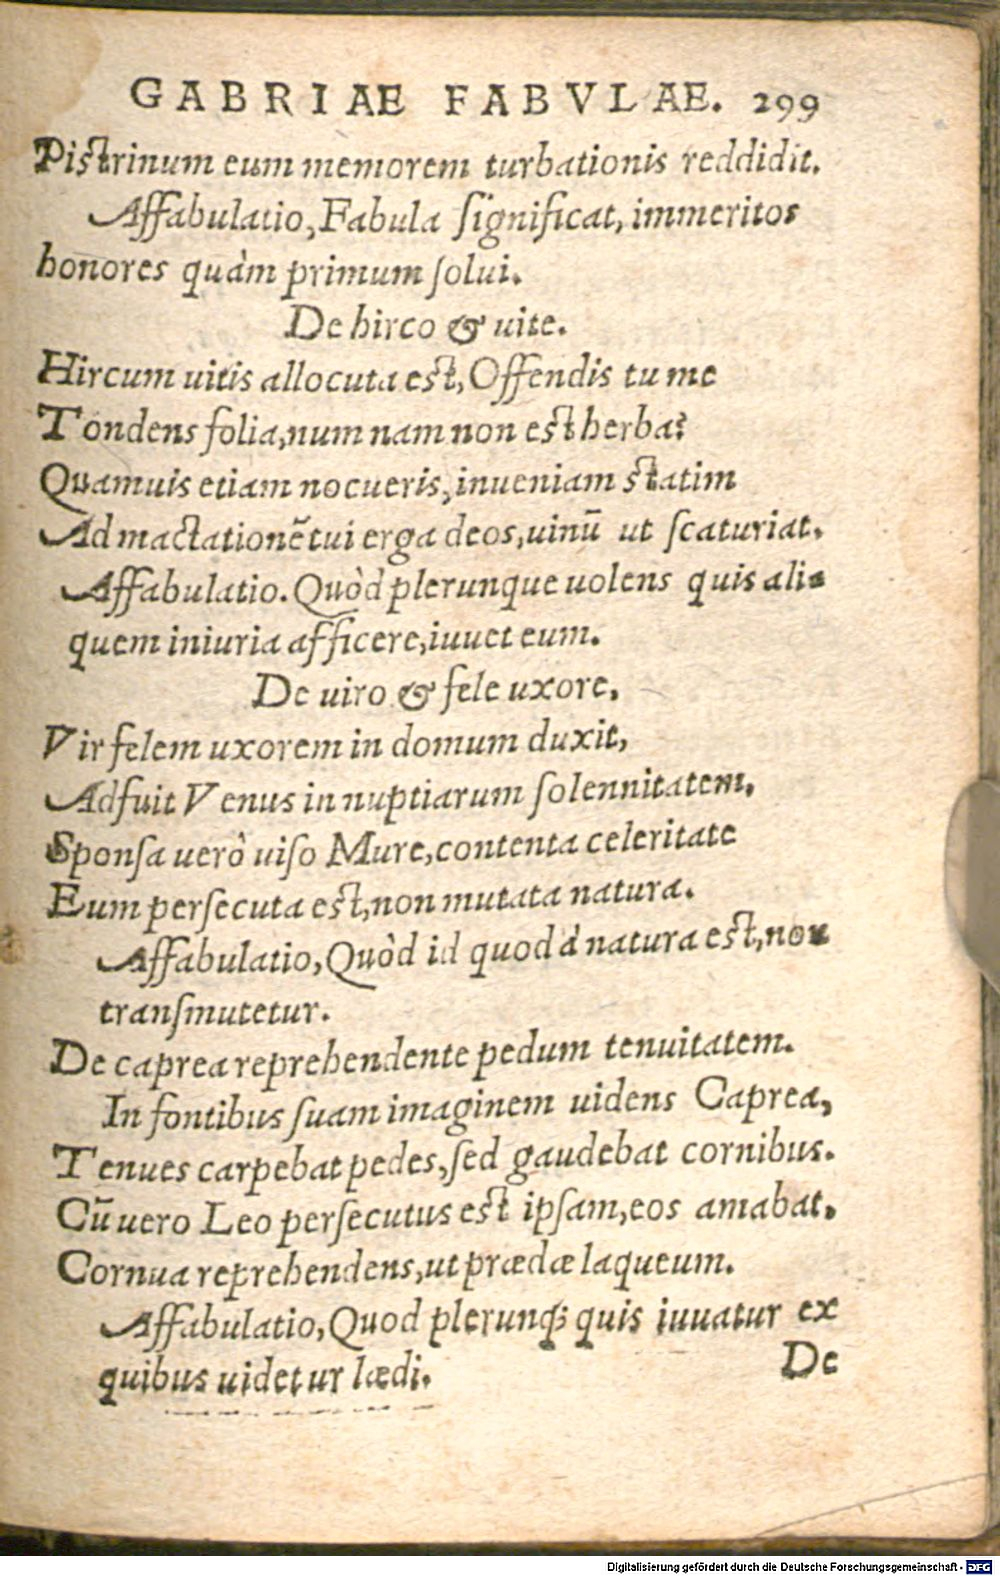 GABRIAE FABVLAE. 299
Pistrinum eum memorem turbationis reddidit.
Affabulatio, Fabula significat, immeritos
honores quàm primum solui.
De hirco & uite.
Hircum uitis allocuta est, Offendis tu me
Tondens folia, num nam non est herba?
Quamuis etiam nocueris, inueniam statim
Ad mactationẽ tui erga deos, uinũ ut scaturiat.
Affabulatio. Quòd plerunque uolens quis ali-
quem iniuria afficere, iuuet eum.
De uiro & fele uxore.
Vir felem uxorem in domum duxit,
Adfuit Venus in nuptiarum solennitatem.
Sponsa uerò uiso Mure, contenta celeritate
Eum persecuta est, non mutata natura.
Affabulatio, Quòd id quod à natura est, non
transmutetur.
De caprea reprehendente pedum tenuitatem.
In fontibus suam imaginem uidens Caprea,
Tenues carpebat pedes, sed gaudebat cornibus.
Cũ uero Leo persecutus est ipsam, eos amabat.
Cornua reprehendens, ut prædæ laqueum.
Affabulatio, Quod plerunq; quis iuuatur ex
quibus uidetur lædi.
De
Digitalisierung gefördert durch die Deutsche Forschungsgemeinschaft - DFG